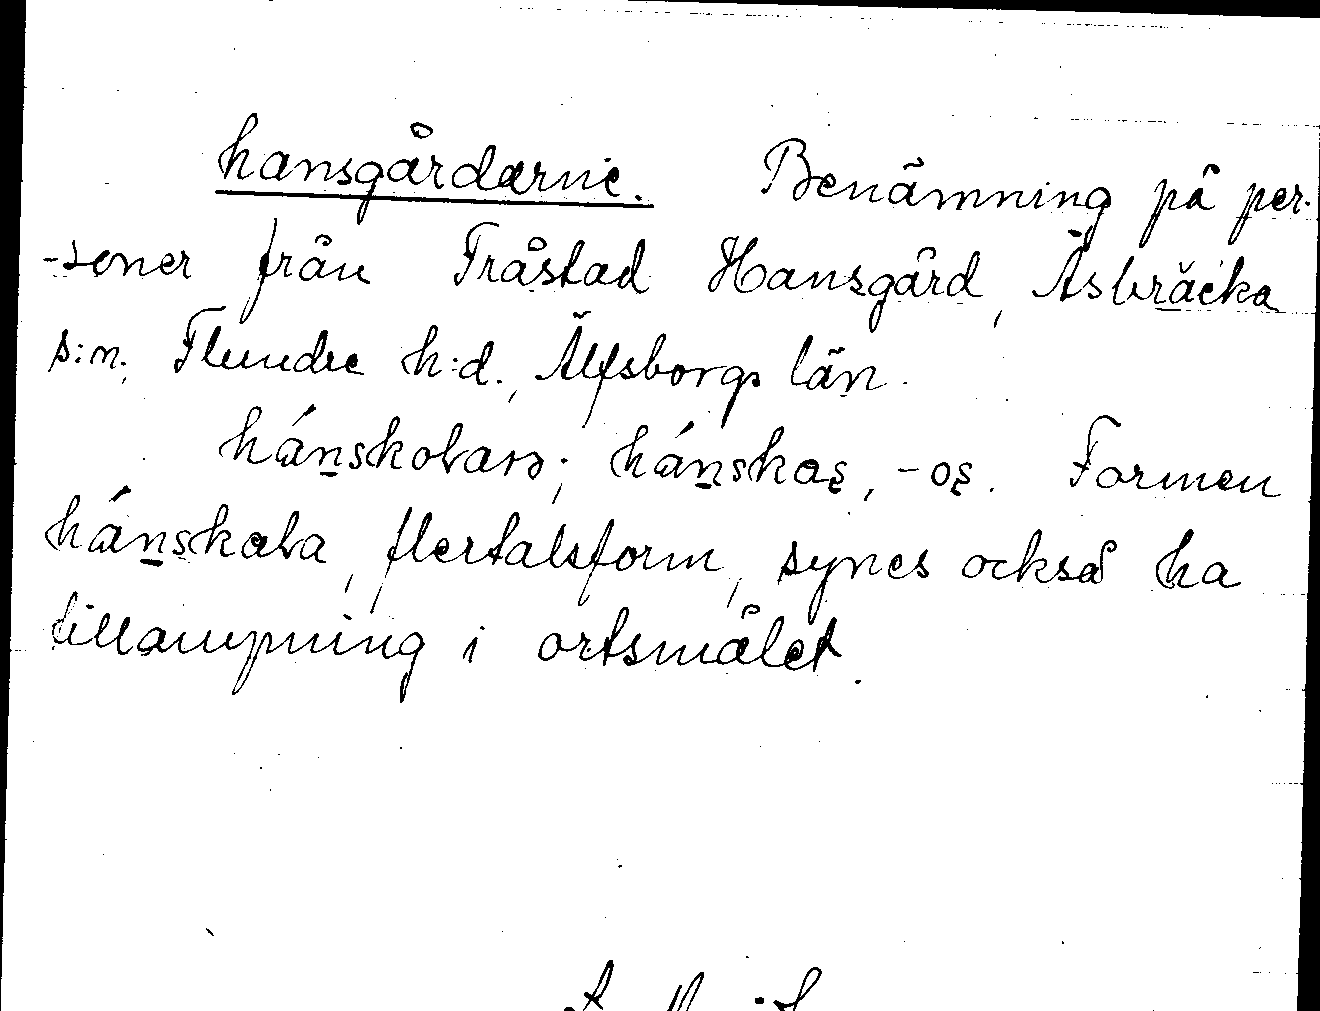 hansgårdarne. Benämning på per-
-soner från Tråstad Hansgård, Åsbräcka
s:n, Flundre h:d., Älfsborgs län.
hánskolarə; hánskas̨, -os̨. Formen
hánskala, flertalsform, synes också ha
tillämpning i ortsmålet.